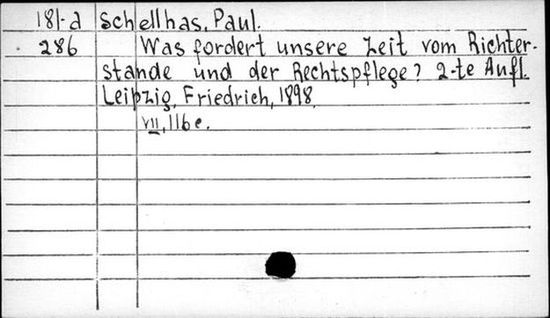 181-d Schellhas, Paul.
286 Was fordert unsere Zeit vom Richter-
stande und der Rechtspflege? 2-te Aufl.
Leipzig, Friedrich, 1898.
VII, 116 c.